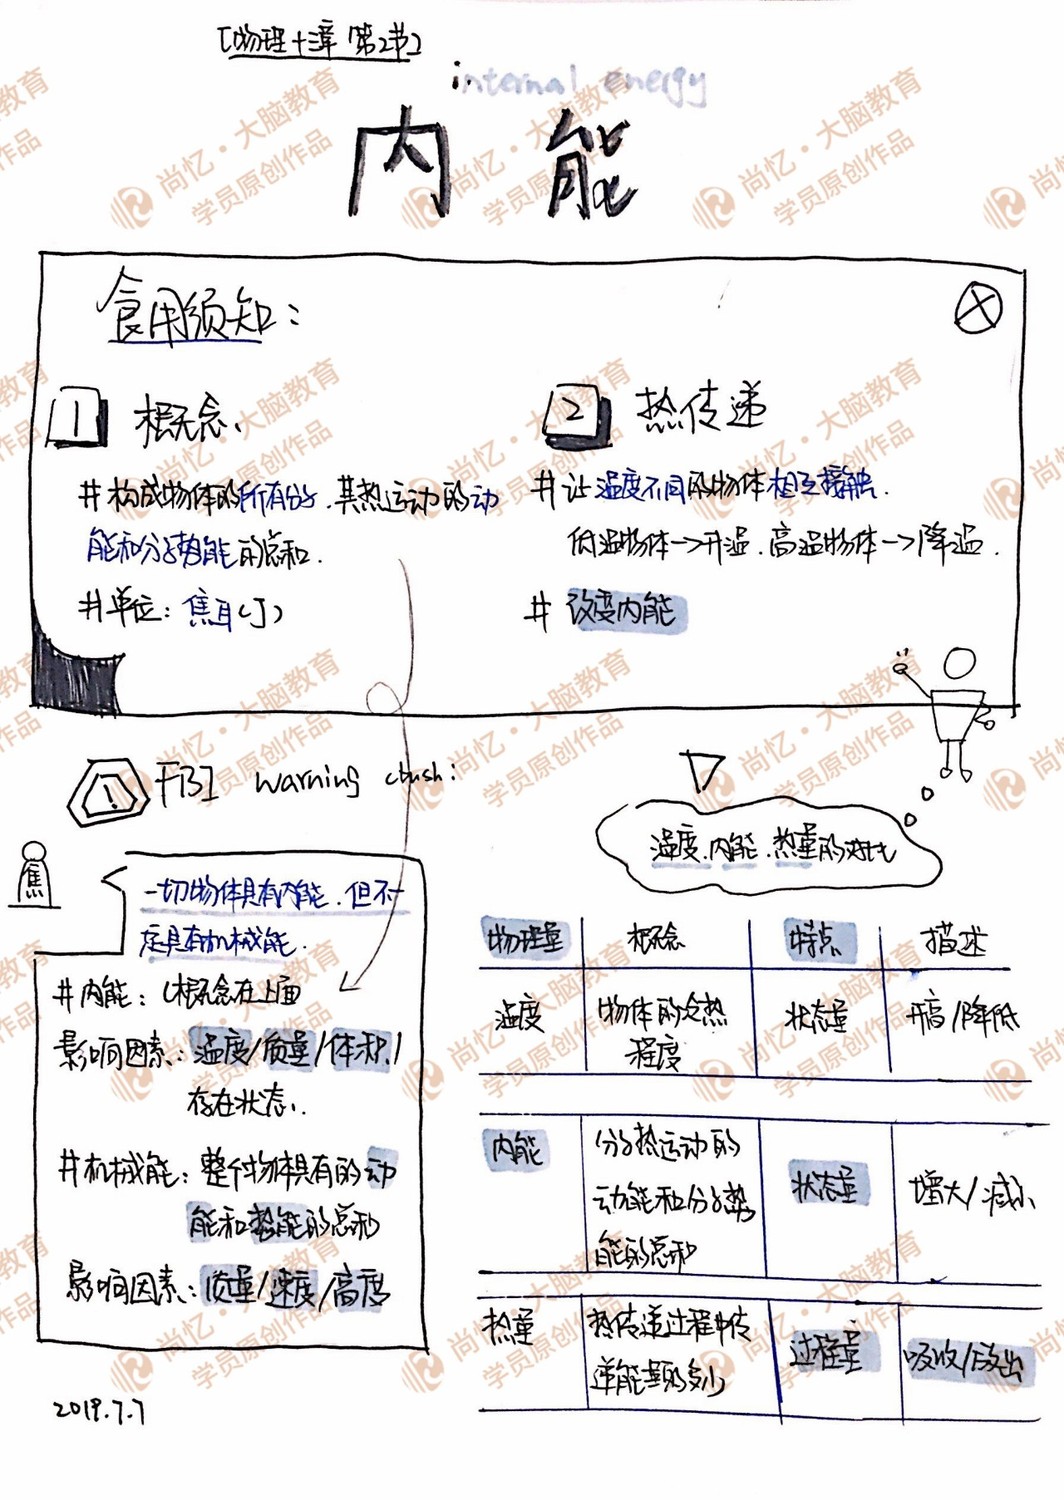 [物理十三章 第2节]
internal energy
内能
食用须知：
1 概念、
#构成物体的所有分子，其热运动的动
能和分子势能的总和．
#单位：焦耳(J)
2 热传递
#让温度不同的物体相互接触．
低温物体→升温．高温物体→降温．
#改变内能
! FBI warning
焦
一切物体具有内能，但不一
定具有机械能．
#内能：(概念在上面
影响因素：温度/质量/体积/
存在状态、
#机械能：整个物体具有的动
能和势能的总和
影响因素：质量/速度/高度
2019.7.7
温度、内能、热量的对比
物理量 概念 特点 描述
温度 物体的冷热 状态量 升高/降低
程度
内能 分子热运动的 状态量 增大/减小
动能和分子势
能的总和
热量 热传递过程中传 过程量 吸收/放出
递能量的多少
尚忆·大脑教育
学员原创作品